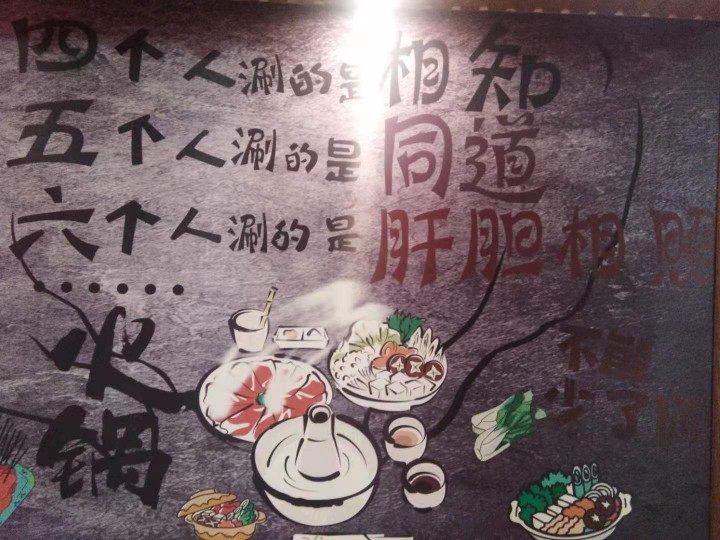 四个人涮的是相知
五个人涮的是同道
六个人涮的是肝胆相照
......
火锅
不能
少了